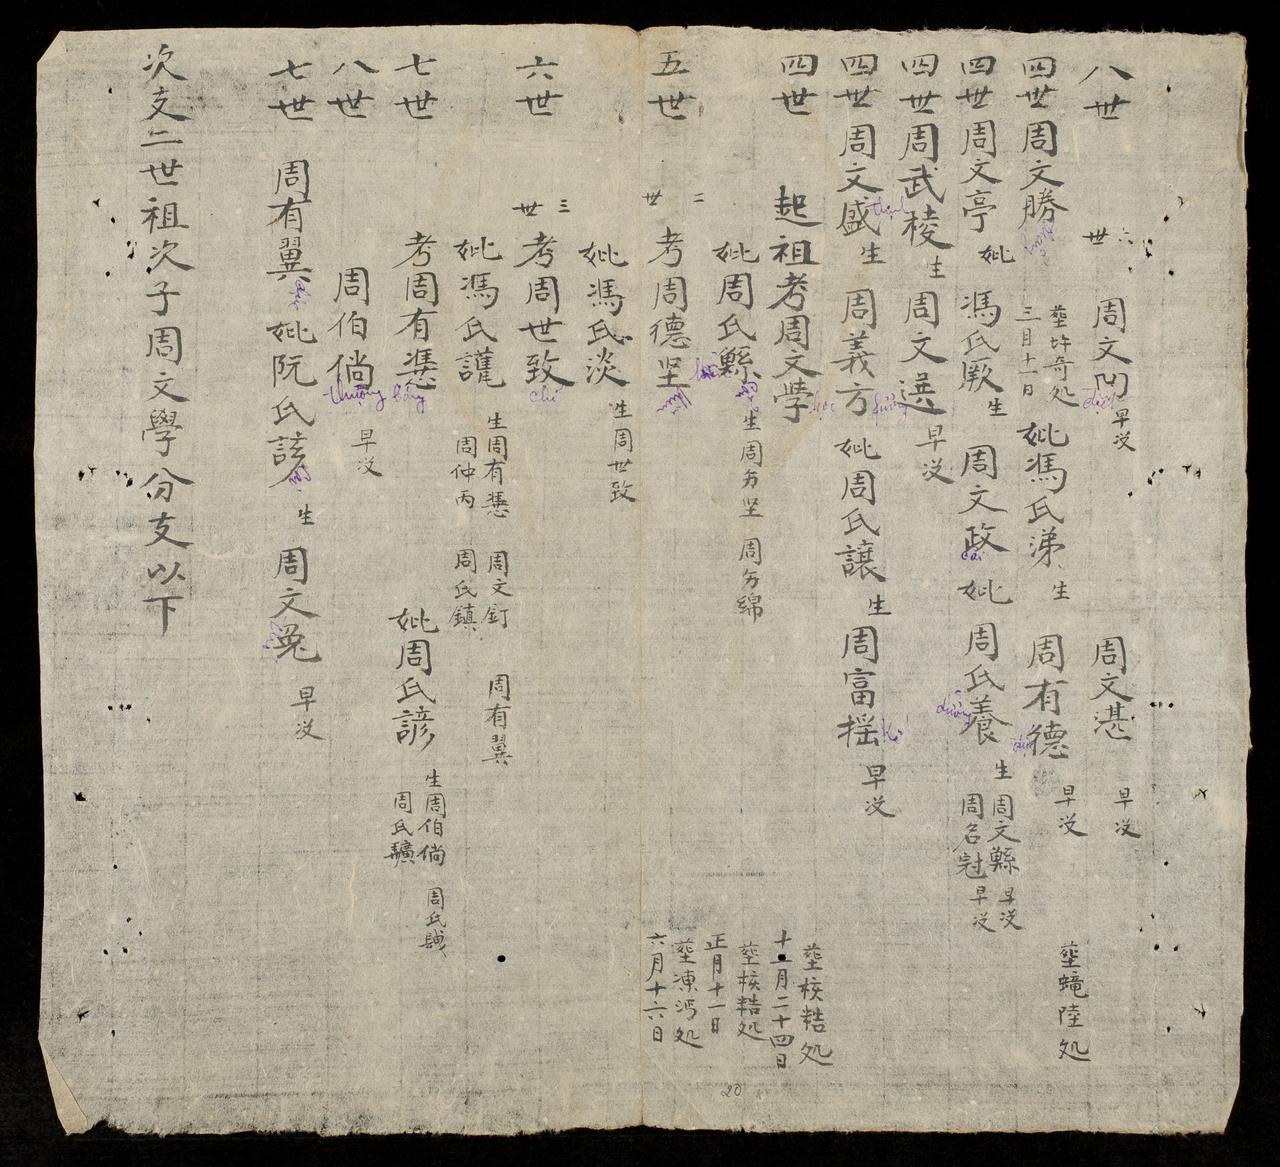 八世 六世 周文 早没 周文湛 早没
四世周文勝 塟 竒处 三月十一日 妣馮氏涕 生 周有德 早没 塟 陸处
四世周文亭 妣 馮氏厥 生 周文政 妣 周氏養 生 周文縣 早没 周名冠 早没
四世周武稜 生 周文選 早没
四世周文盛 生 周義方 妣周氏讓 生 周富摇 早没
四世 起祖考周文學 塟核粘处 十二月二十四日
妣周氏縣 生周 坚 周 綿 塟核粘处 正月十一日
五世 二世 考周德坚 塟凍沔处 六月十六日
妣馮氏淡 生周世致
六世 三世 考周世致
妣馮氏護 生周有慿 周文釘 周有翼 周仲丙 周氏鎮
七世 考周有慿 妣周氏諺 生周伯倘 周氏 周氏
八世 周伯倘 早没 thượng bổng
七世 周有翼 妣阮氏該 生 周文 早没
次支二世祖次子周文學分支以下
20